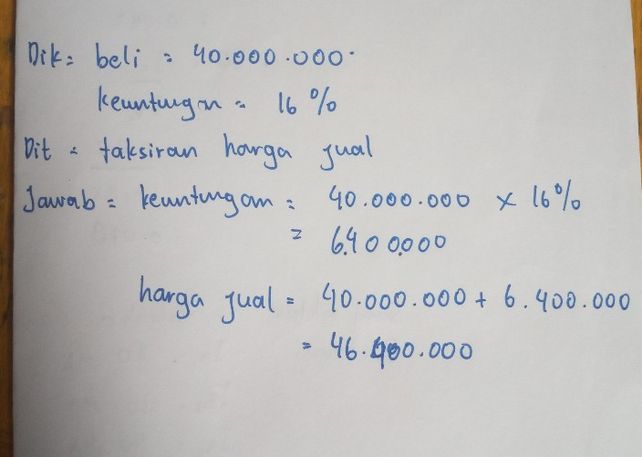 Dik = beli = 40.000.000
keuntungan = 16%
Dit = taksiran harga jual
Jawab = keuntungan = 40.000.000 x 16%
= 6.400.000
harga jual = 40.000.000 + 6.400.000
= 46.400.000